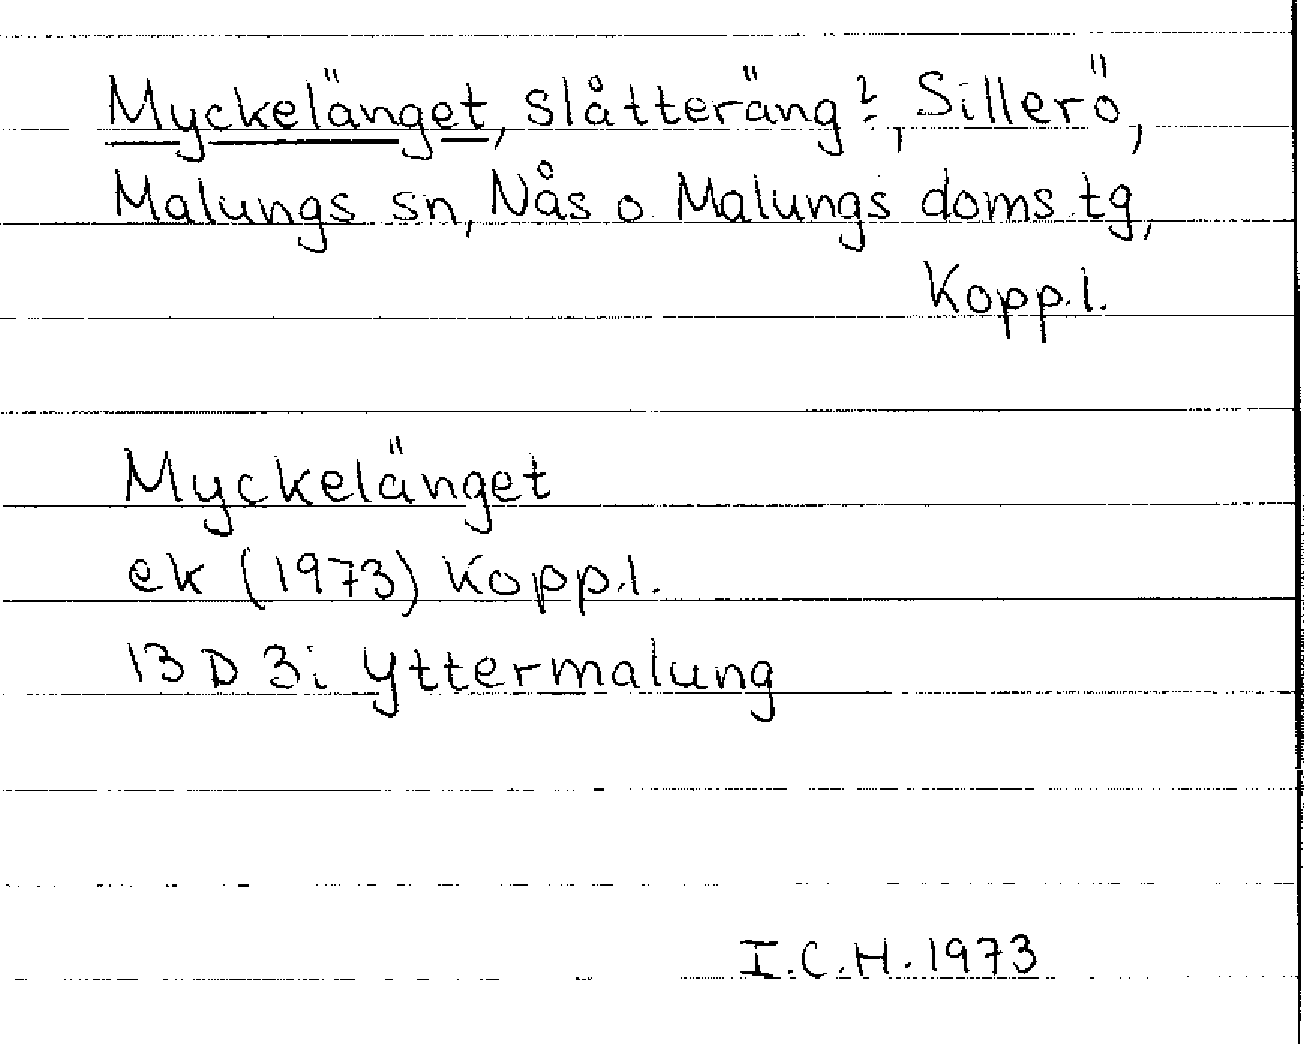 Myckelänget, slåtteräng?, Sillerö,
Malungs sn, Nås o Malungs doms.tg,
Kopp.l.
Myckelänget
ek (1973) Kopp.l.
13 D 3i Yttermalung
I.C.H. 1973